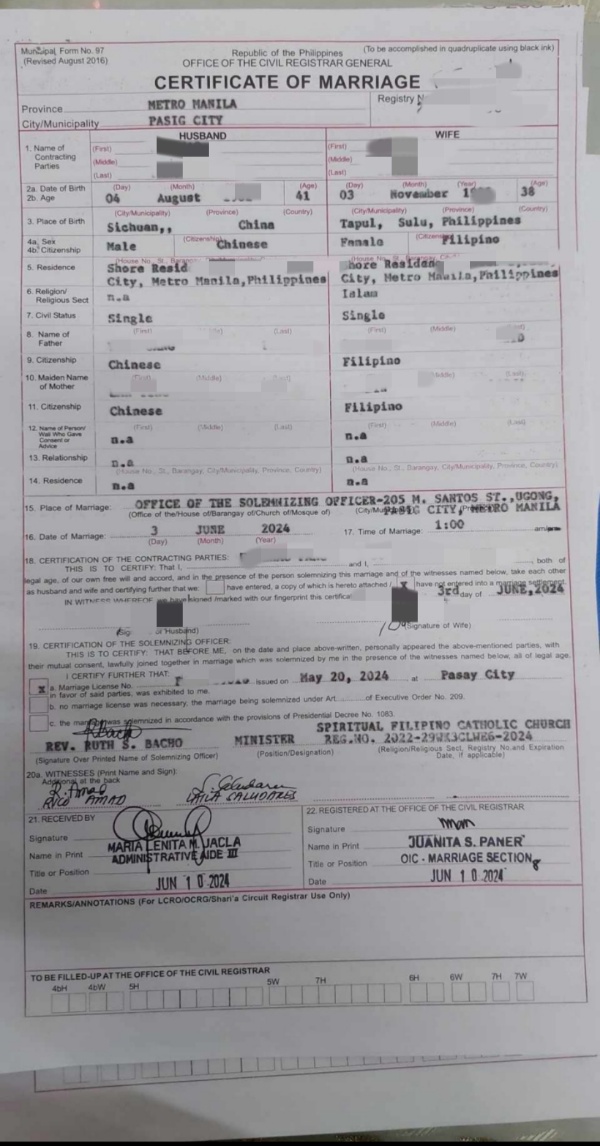 Municipal Form No. 97
(Revised August 2016)
Republic of the Philippines
OFFICE OF THE CIVIL REGISTRAR GENERAL
(To be accomplished in quadruplicate using black ink)
CERTIFICATE OF MARRIAGE
Province METRO MANILA
Registry
City/Municipality PASIG CITY
HUSBAND WIFE
1. Name of Contracting Parties
(First) (First)
(Middle) (Middle)
(Last) (Last)
2a. Date of Birth
2b. Age
(Day) (Month) (Age) (Day) (Month) (Year) (Age)
04 August 41 03 November 38
(City/Municipality) (Province) (Country) (City/Municipality) (Province) (Country)
3. Place of Birth Sichuan,, China Tapul, Sulu, Philippines
4a. Sex
4b. Citizenship
Male Chinese Female Filipino
5. Residence
Shore Resid
City, Metro Manila,Philippines
hore Residen
City, Metro Manila,Philippines
6. Religion/ Religious Sect n.a Islam
7. Civil Status Single Single
8. Name of Father
(First) (Last) (First) (Middle)
9. Citizenship Chinese Filipino
10. Maiden Name of Mother
(First) (Middle) (Middle) (Last)
11. Citizenship Chinese Filipino
12. Name of Person/ Wali Who Gave Consent or Advice
(First) (Middle) (Last) (First) (Middle) (Last)
n.a n.a
13. Relationship n.a n.a
(House No., St., Barangay, City/Municipality, Province, Country) (House No., St., Barangay, City/Municipality, Province, Country)
14. Residence n.a n.a
15. Place of Marriage: OFFICE OF THE SOLEMNIZING OFFICER-205 M. SANTOS ST.,UGONG,
PASIG CITY, METRO MANILA
(Office of the/House of/Barangay of/Church of/Mosque of)
16. Date of Marriage: 3 JUNE 2024 17. Time of Marriage: 1:00
(Day) (Month) (Year)
18. CERTIFICATION OF THE CONTRACTING PARTIES:
THIS IS TO CERTIFY: That I, and I, both of
legal age, of our own free will and accord, and in the presence of the person solemnizing this marriage and of the witnesses named below, take each other
as husband and wife and certifying further that we: have entered, a copy of which is hereto attached / X have not entered into a marriage settlement.
IN WITNESS WHEREOF, we have signed /marked with our fingerprint this certificate 3rd day of JUNE,2024
of Husband) (Signature of Wife)
19. CERTIFICATION OF THE SOLEMNIZING OFFICER:
THIS IS TO CERTIFY: THAT BEFORE ME, on the date and place above-written, personally appeared the above-mentioned parties, with
their mutual consent, lawfully joined together in marriage which was solemnized by me in the presence of the witnesses named below, all of legal age.
I CERTIFY FURTHER THAT:
x a. Marriage License No. issued on May 20, 2024 at Pasay City
in favor of said parties, was exhibited to me.
b. no marriage license was necessary, the marriage being solemnized under Art. of Executive Order No. 209.
c. the marriage was solemnized in accordance with the provisions of Presidential Decree No. 1083.
SPIRITUAL FILIPINO CATHOLIC CHURCH
REV. RUTH S. BACHO MINISTER
(Signature Over Printed Name of Solemnizing Officer) (Position/Designation) (Religion/Religious Sect, Registry No.and Expiration Date, if applicable)
20a. WITNESSES (Print Name and Sign):
Additional at the back
RICO AMAD
21. RECEIVED BY
Signature
Name in Print MARIA LENITA M. JACLA
Title or Position ADMINISTRATIVE AIDE III
Date JUN 1 0 2024
22. REGISTERED AT THE OFFICE OF THE CIVIL REGISTRAR
Signature
Name in Print JUANITA S. PANER
Title or Position OIC - MARRIAGE SECTION
Date JUN 1 0 2024
REMARKS/ANNOTATIONS (For LCRO/OCRG/Shari'a Circuit Registrar Use Only)
TO BE FILLED-UP AT THE OFFICE OF THE CIVIL REGISTRAR
4bH 4bW 5H 5W 7H 6H 6W 7H 7W